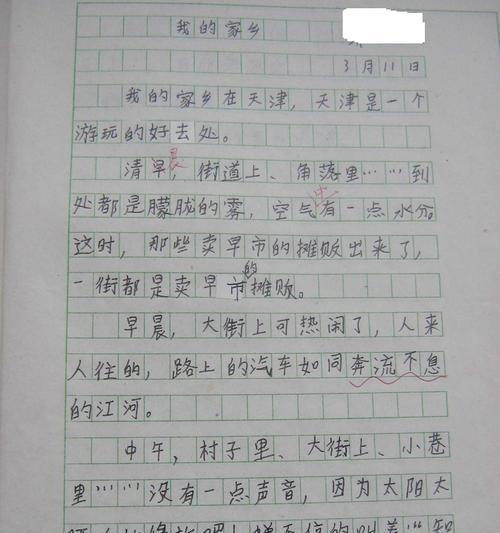 我的家乡
3月11日
我的家乡在天津，天津是一个
游玩的好去处。
清早晨，街道上、角落里……到
处都是朦胧的雾，空气中有一点水分。
这时，那些卖早市的摊贩出来了，
一街都是卖早市的摊贩。
早晨，大街上可热闹了，人来
人往的，路上的汽车如同奔流不息
的江河。
中午，村子里、大街上、小巷
里……没有一点声音，因为太阳太